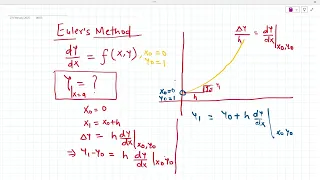 Euler's Method
dy/dx = f(x,y), x0=0
y0=1
y1|x=a = ?
x0 = 0
x1 = x0+h
Δy = h dy/dx|x0,y0
⇒ y1-y0 = h dy/dx|x0 y0
Δy/h = dy/dx|x0,y0
x0=0
y0=1
h
y1
y1 = y0+h dy/dx|x0 y0